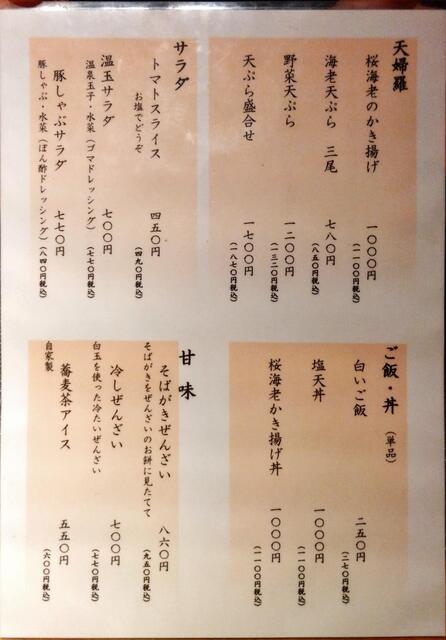 天婦羅
桜海老のかき揚げ 一〇〇〇円
(一一〇〇円税込)
海老天ぷら 三尾 七八〇円
(八五〇円税込)
野菜天ぷら 一二〇〇円
(一三二〇円税込)
天ぷら盛合せ 一七〇〇円
(一八七〇円税込)
サラダ
トマトスライス 四五〇円
お塩でどうぞ (四九〇円税込)
温玉サラダ 七〇〇円
温泉玉子・水菜(ゴマドレッシング) (七七〇円税込)
豚しゃぶサラダ 七七〇円
豚しゃぶ・水菜(ぽん酢ドレッシング) (八四〇円税込)
ご飯・丼 (単品)
白いご飯 二五〇円
(二七〇円税込)
塩天丼 一〇〇〇円
(一一〇〇円税込)
桜海老かき揚げ丼 一〇〇〇円
(一一〇〇円税込)
甘味
そばがきぜんざい 八六〇円
そばがきをぜんざいのお餅に見たてて (九五〇円税込)
冷しぜんざい 七〇〇円
白玉を使った冷たいぜんざい (七七〇円税込)
蕎麦茶アイス 五五〇円
自家製 (六〇〇円税込)